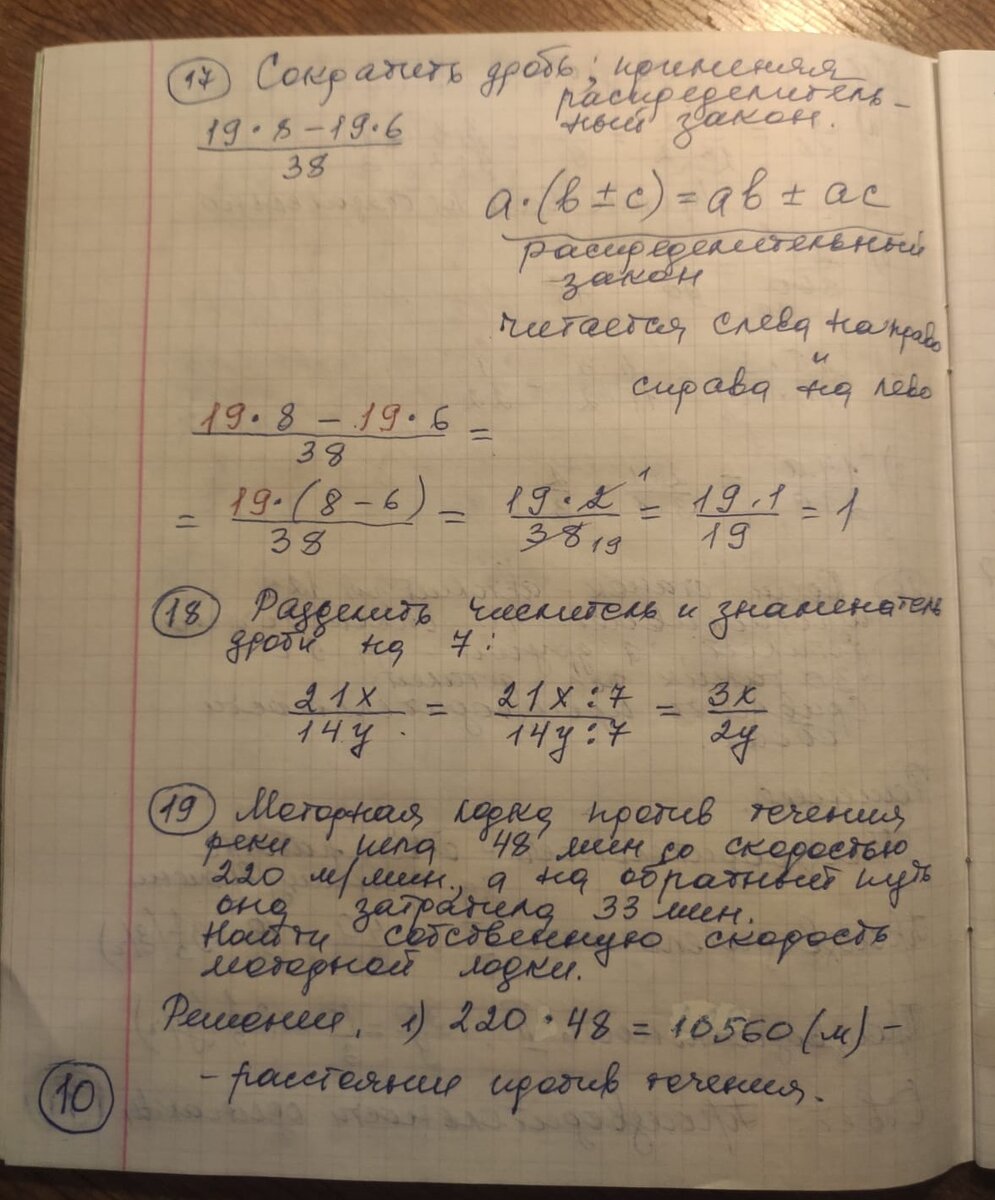 17 Сократить дробь, применяя
распределитель-
ный закон.
19·8−19·6
38
a·(b±c)=ab±ac
распределительный
закон
читается слева направо
и
справа на лево
19·8−19·6 =
38
= 19·(8−6) = 19·2 1 = 19·1 = 1
38 38 19 19
18 Разделить числитель и знаменатель
дроби на 7:
21x = 21x:7 = 3x
14y 14y:7 2y
19 Моторная лодка против течения
реки шла 48 мин со скоростью
220 м/мин., а на обратный путь
она затратила 33 мин.
Найти собственную скорость
моторной лодки.
Решение. 1) 220·48=10560(м)−
−расстояние против течения.
10